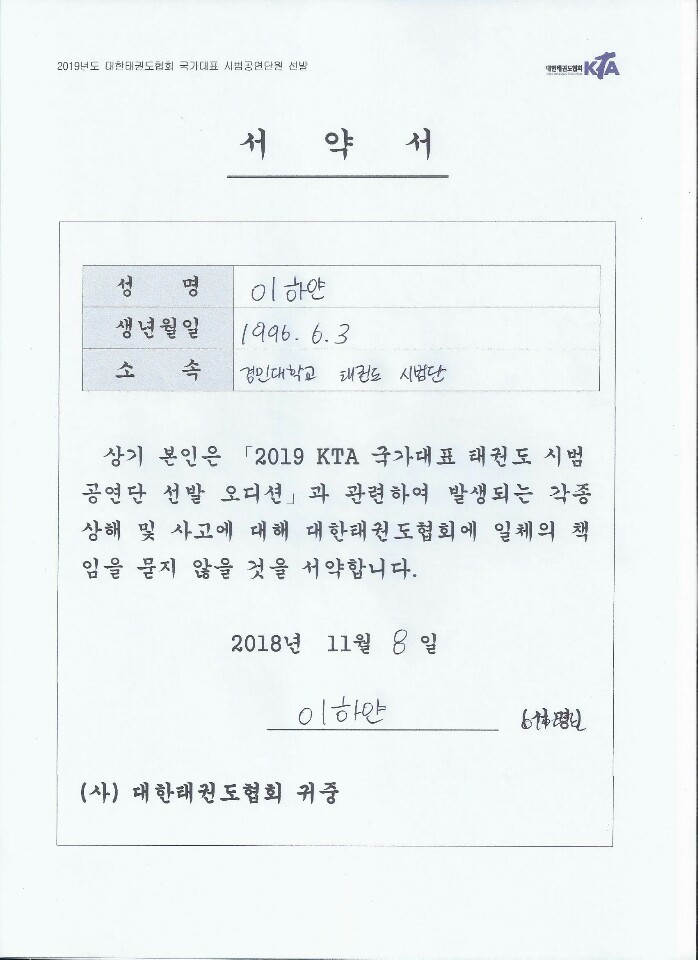 2019년도 대한태권도협회 국가대표 시범공연단원 선발
대한태권도협회 KTA
서 약 서
성 명 이하얀
생년월일 1996. 6. 3
소 속 경민대학교 태권도 시범단
상기 본인은 「2019 KTA 국가대표 태권도 시범
공연단 선발 오디션」과 관련하여 발생되는 각종
상해 및 사고에 대해 대한태권도협회에 일체의 책
임을 묻지 않을 것을 서약합니다.
2018년 11월 8 일
이하얀
(사) 대한태권도협회 귀중